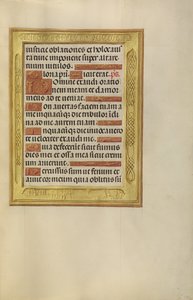 iustitie oblationes et holocaus
ta tunc imponent super altare
tuum vitulos.
Gloria pri Sicut erat. ps
Domine exaudi oratio
nem meam et clamor
meus ad te veniat.
Non avertas faciem tuam a
me in quacumque die tribulor incli
na ad me aurem tuam
In quacumque die invocavero
te velociter exaudi me.
Quia defecerunt sicut fumus
dies mei et ossa mea sicut cremi
um aruerunt.
Percussus sum ut fenum et
aruit cor meum quia oblitus su